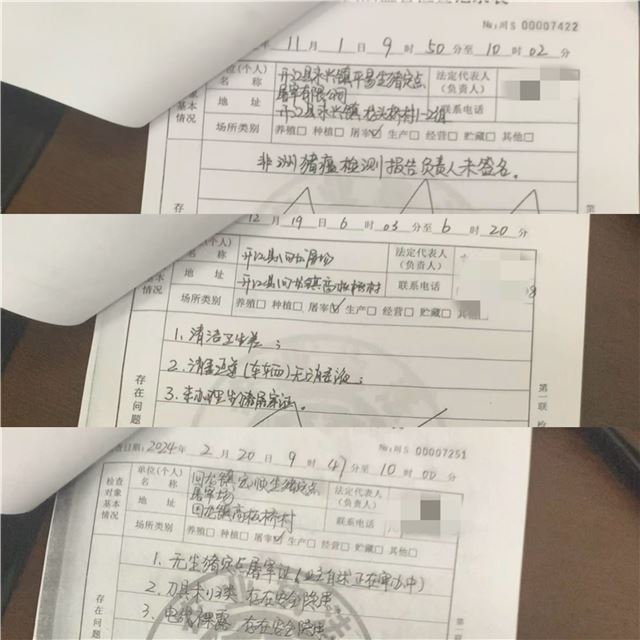 №:川S 00007422
11 月 1 日 9 时 50 分至 10 时 02 分
单位(个人) 开江县永兴镇平易生猪定点屠宰有限公司
法定代表人(负责人)
基本情况
地 址 开江县永兴镇
联系电话
场所类别 养殖□ 种植□ 屠宰☑ 生产□ 经营□ 贮藏□ 其他□
非洲猪瘟检测报告负责人未签名。
存在
第一
12 月 19 日 6 时 03 分至 6 时 20 分
单位(个人) 开江县回龙屠场
法定代表人(负责人)
基本情况
地 址 开江县回龙镇高板桥村
联系电话
场所类别 养殖□ 种植□ 屠宰☑ 生产□ 经营□ 贮藏□ 其他□
1. 清洁卫生差；
2. 消毒通道(车车四)无消毒液；
3. 未办理生猪屠宰证。
存在问题
第一联
检查日期: 2024年 2 月 20 日 9 时 47 分至 10 时 00 分
№:川S 00007251
检查对象基本情况
单位(个人) 回龙镇 生猪定点屠宰场
法定代表人(负责人)
地 址 回龙镇高板桥村
联系电话
场所类别 养殖□ 种植□ 屠宰☑ 生产□ 经营□ 贮藏□ 其他□
1. 无生猪定点屠宰证(业主自述正在审办中)
2. 刀具未归类 存在安全隐患
3. 电线裸露 存在安全隐患
存在问题
第一联